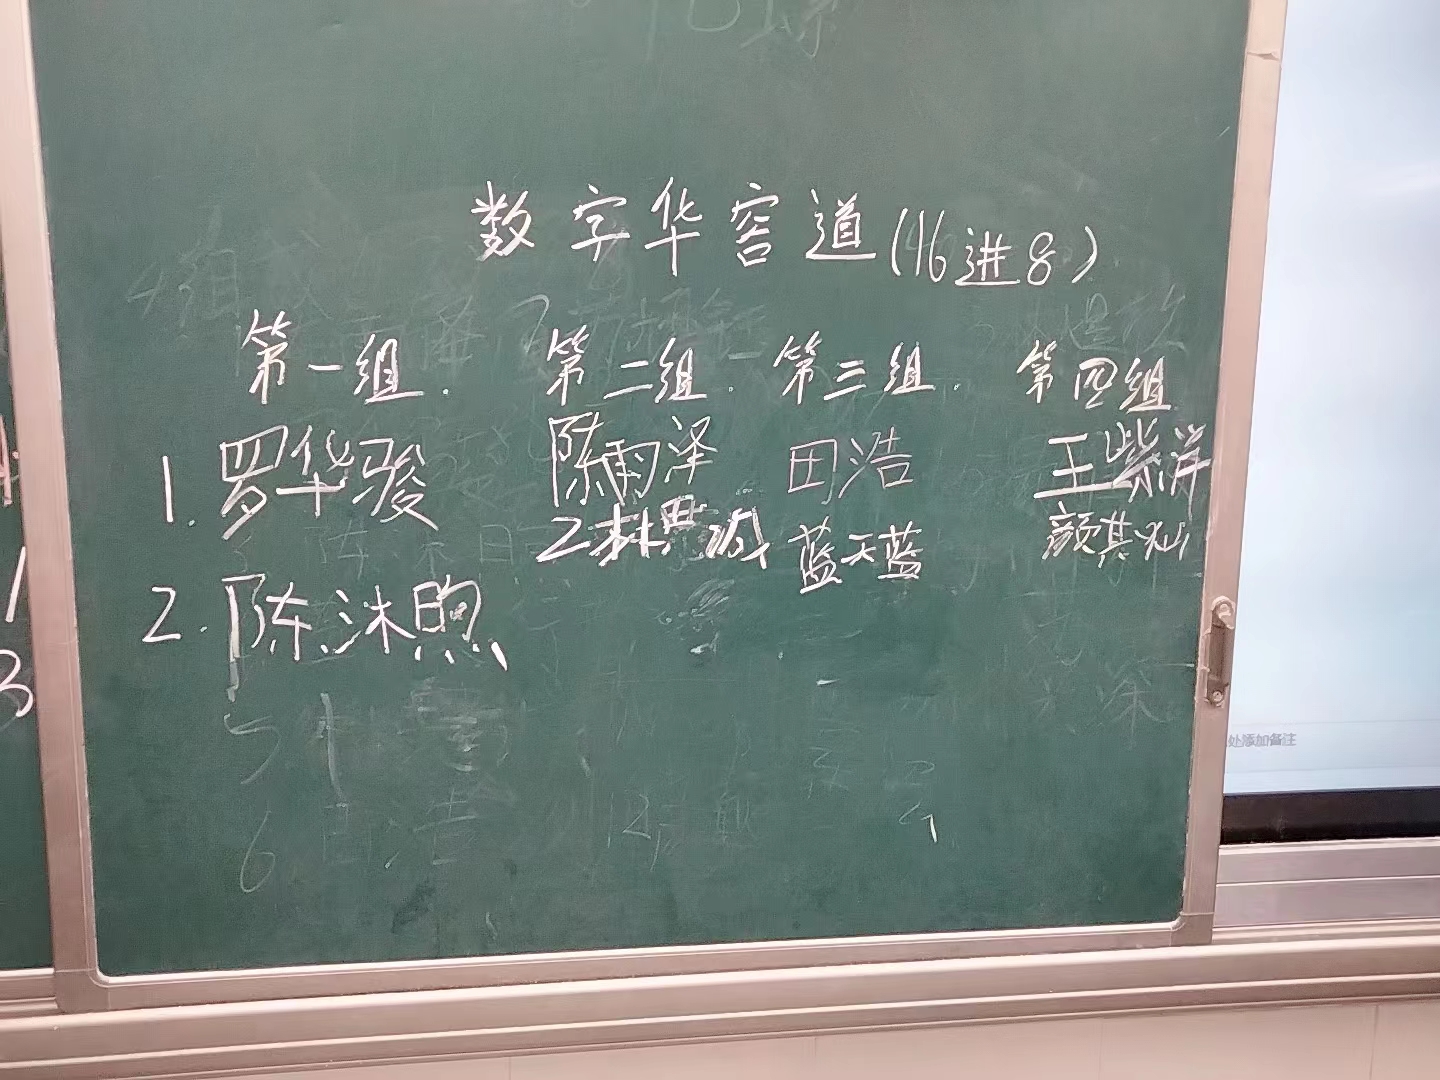 数字华容道(16进8)
第一组. 第二组. 第三组. 第四组
1. 罗华骏 陈雨泽 田浩 王紫洋
2 林 蓝天蓝 颜其灿
2. 陈沐煦
5
6
1
3
处添加备注